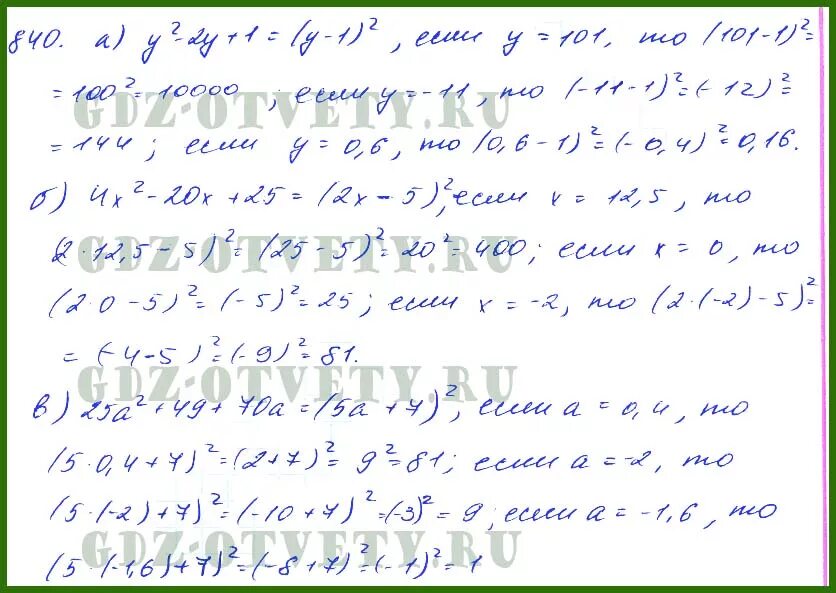 840. а) y²-2y+1=(y-1)², если y=101, то (101-1)²=
=100²=10000; если y=-11, то (-11-1)²=(-12)²=
=144; если y=0,6, то (0,6-1)²=(-0,4)²=0,16.
б) 4x²-20x+25=(2x-5)², если x=12,5, то
(2·12,5-5)²=(25-5)²=20²=400; если x=0, то
(2·0-5)²=(-5)²=25; если x=-2, то (2·(-2)-5)²=
=(-4-5)²=(-9)²=81.
в) 25a²+49+70a=(5a+7)², если a=0,4, то
(5·0,4+7)²=(2+7)²=9²=81; если a=-2, то
(5·(-2)+7)²=(-10+7)²=(-3)²=9; если a=-1,6, то
(5·(-1,6)+7)²=(-8+7)²=(-1)²=1
GDZ-OTVETY.RU
GDZ-OTVETY.RU
GDZ-OTVETY.RU
GDZ-OTVETY.RU